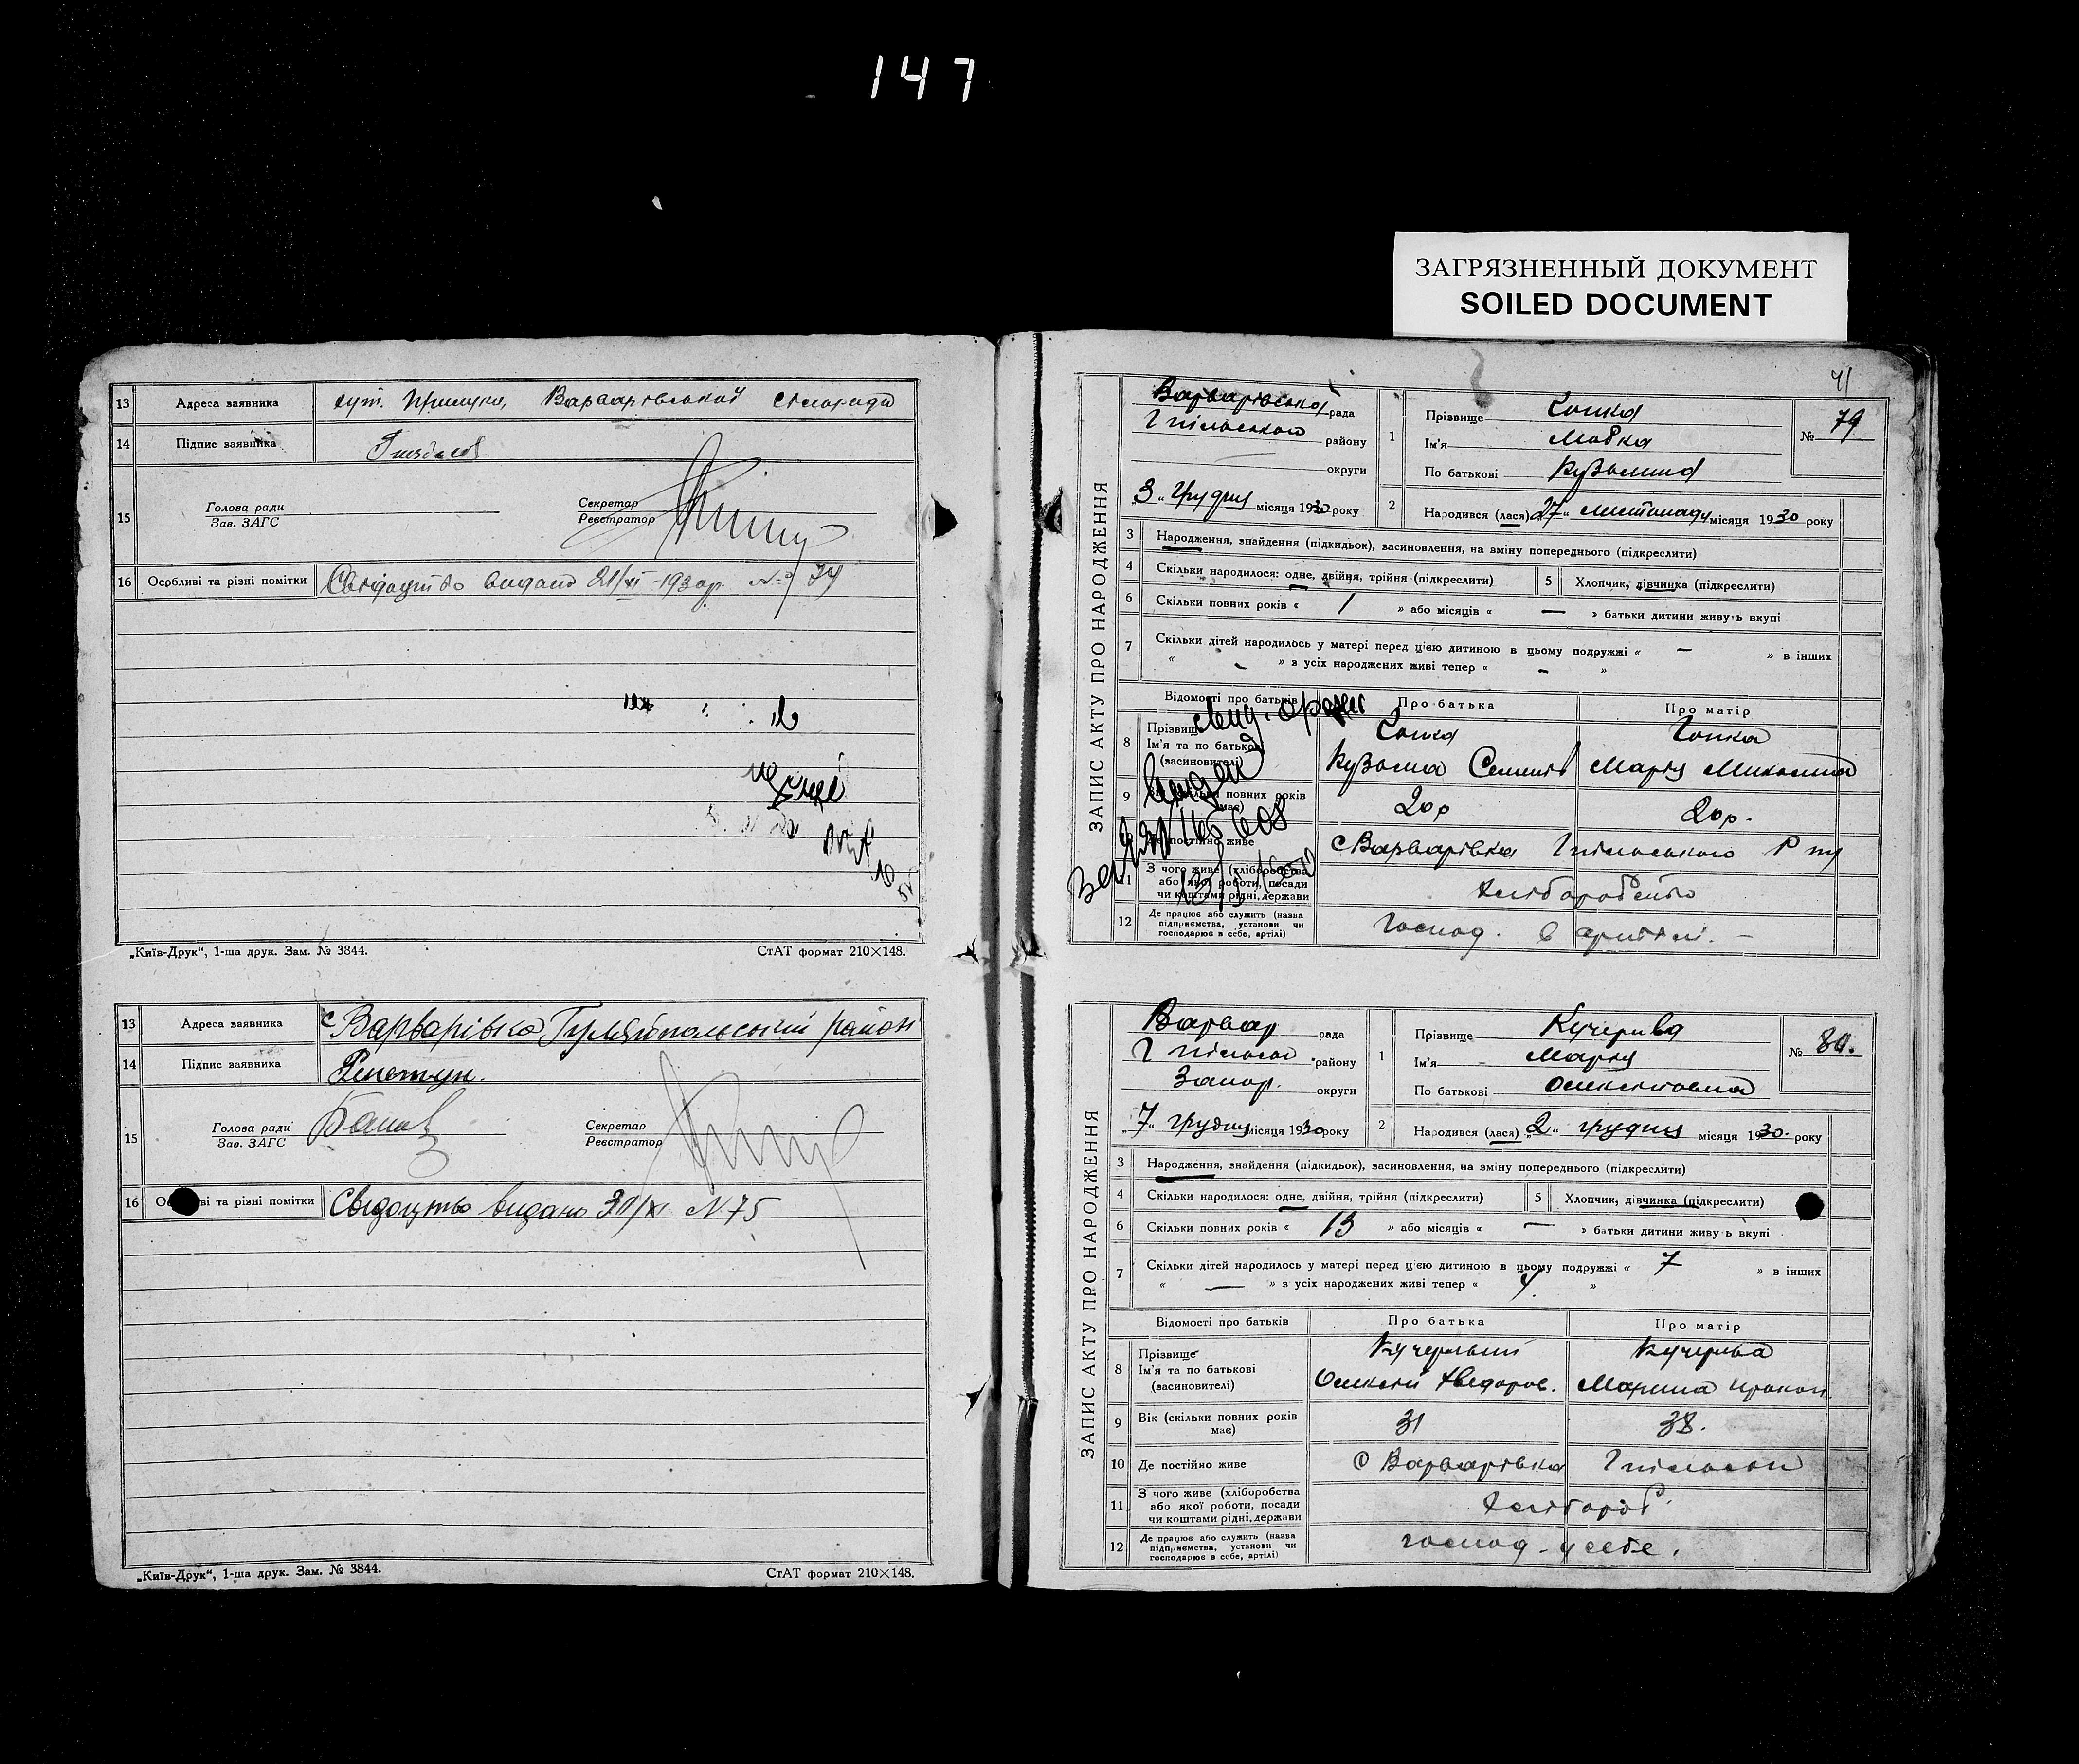 147
ЗАГРЯЗНЕННЫЙ ДОКУМЕНТ
SOILED DOCUMENT
13 Адреса заявника Варварівської сільради
14 Підпис заявника
15 Голова ради
Зав. ЗАГС
Секретар
Реєстратор
16 Особливі та різні помітки Свідоцтво видано 21/XI-1930р. № 74
„Київ-Друк“, 1-ша друк. Зам. № 3844.
СтАТ формат 210×148.
13 Адреса заявника с Варварівка Гуляйпольський район
14 Підпис заявника
15 Голова ради
Зав. ЗАГС
Секретар
Реєстратор
16 Особливі та різні помітки Свідоцтво видано XI N 75
„Київ-Друк“, 1-ша друк. Зам. № 3844.
СтАТ формат 210×148.
41
ЗАПИС АКТУ ПРО НАРОДЖЕННЯ
Варварівська рада
Гпільського району
округи
„3“ Грудня місяця 1930 року
1 Прізвище
Ім'я
По батькові
№ 79
2 Народився (лася) „27“ листопада місяця 1930 року
3 Народження, знайдення (підкидьок), засиновлення, на зміну попереднього (підкреслити)
4 Скільки народилося: одне, двійня, трійня (підкреслити)
5 Хлопчик, дівчинка (підкреслити)
6 Скільки повних років « 1 » або місяців « — » батьки дитини живуть вкупі
7 Скільки дітей народилось у матері перед цією дитиною в цьому подружжі « — » в інших
« - » з усіх народжених живі тепер « - »
Відомості про батьків Про батька Про матір
8 Прізвище
Ім'я та по батькові
(засиновителі)
Кузьма Семенів Марія Микитівна
9 повних років
має) 20р 20р.
Де постійно живе с Варварівка Гпільського Р ну
11 З чого живе (хліборобства
або якої роботи, посади
чи коштами рідні, держави
хліборобство
12 Де працює або служить (назва
підприємства, установи чи
господарює в себе, артілі)
господ. в артілі. —
ЗАПИС АКТУ ПРО НАРОДЖЕННЯ
Варвар рада
Гпільськ району
Запор. округи
„7“ грудня місяця 1930 року
1 Прізвище Кучерива
Ім'я Марія
По батькові Олексіївна
№ 80.
2 Народився (лася) „2“ грудня місяця 1930. року
3 Народження, знайдення (підкидьок), засиновлення, на зміну попереднього (підкреслити)
4 Скільки народилося: одне, двійня, трійня (підкреслити)
5 Хлопчик, дівчинка (підкреслити)
6 Скільки повних років « 13 » або місяців « — » батьки дитини живуть вкупі
7 Скільки дітей народилось у матері перед цією дитиною в цьому подружжі « 7 » в інших
« — » з усіх народжених живі тепер « 4 »
Відомості про батьків Про батька Про матір
8 Прізвище
Ім'я та по батькові
(засиновителі)
Кучерывий Кучерива
Олексій Хведоров. Марина Прокоп.
9 Вік (скільки повних років
має) 31 38.
10 Де постійно живе с Варварівка Гпільськ
11 З чого живе (хліборобства
або якої роботи, посади
чи коштами рідні, держави
хлібороб.
12 Де працює або служить (назва
підприємства, установи чи
господарює в себе, артілі)
господ. у себе.